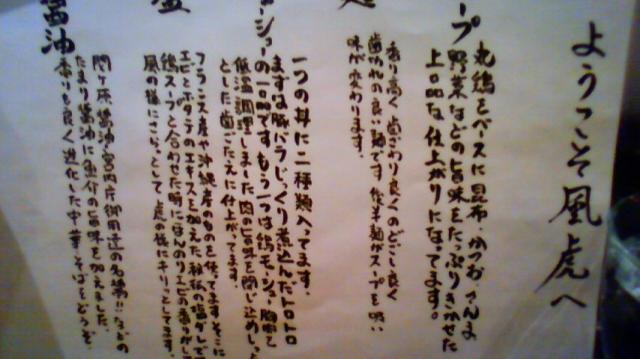 ようこそ風虎へ
ープ
丸鶏をベースに昆布、かつお、さんま
野菜などの旨味をたっぷりきかせた
上品な仕上がりになってます。
香り高く歯ざわり良くのどごし良く
歯切れの良い麺です
味が変わります。
ーシュー
一つの丼に二種類入ってます。
まずは豚バラじっくり煮込んだトロトロ
の一品です もう一つは鶏モ
低温調理しました 肉の旨味を閉じ込めしっ
とした歯ごたえに仕上がってます。
フランス産や沖縄産のものを使ってます そこに
エビとホタテのエキスを加えた
鶏スープと合わせた時にほんのりエビの香りが
風の様にさらっとして虎の様にキリッとしてます。
醤油
関ヶ原醤油宮内庁御用達の名
たまり醤油に魚介の旨味を加えました。
香りも良く進化した中華そばをどうぞ